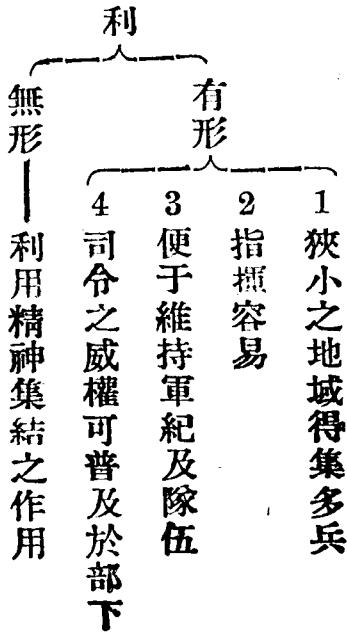 利
有形
1 狹小之地域得集多兵
2 指揮容易
3 便于維持軍紀及隊伍
4 司令之威權可普及於部下
無形
利用精神集結之作用